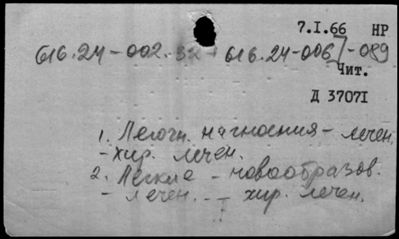 7.I.66 НР
616.24-002.3 616.24-006]-089
Чит.
Д 37071
1. Легочн. нагноения - лечен.
- хир. лечен.
2. Легкие - новообразов.
- лечен. - хир. лечен.